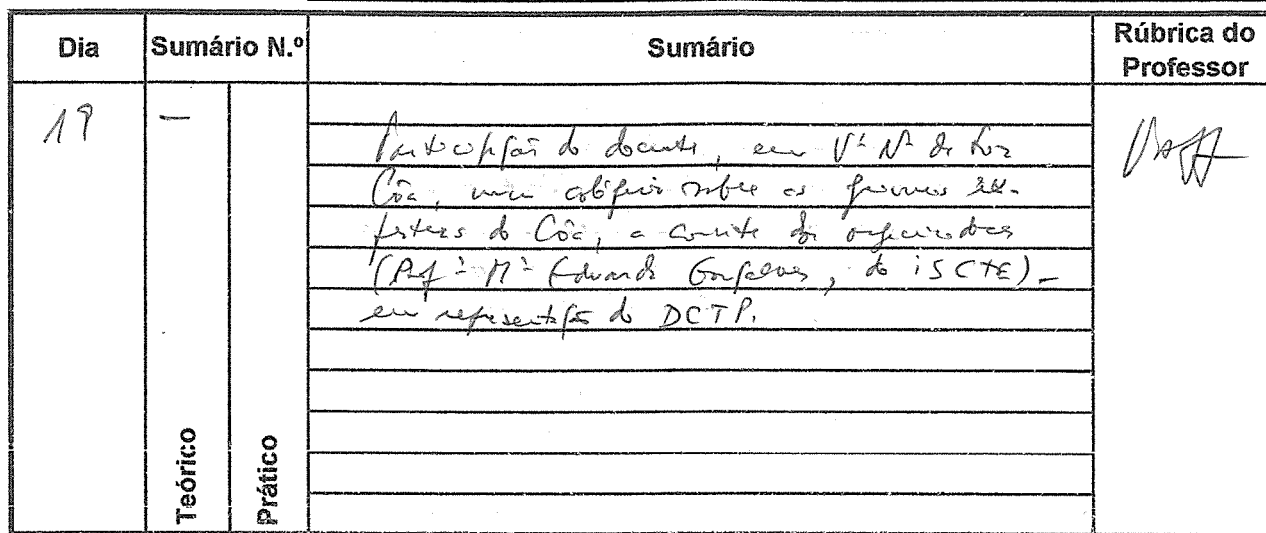 Dia
Sumário N.º
Sumário
Rúbrica do
Professor
19
—
Participação do docente, em Vª Nª de Foz
Côa, num colóquio sobre as gravuras ru-
pestres do Côa, a convite dos organizadores
(Profª Mª Eduarda Gonçalves, do ISCTE) –
em representação do DCTP.
Teórico
Prático